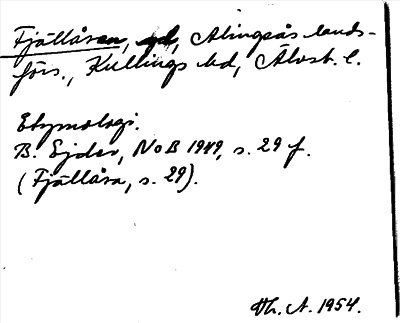 Fjällåsen, gd, Alingsås lands-
förs., Kullings hd, Älvsb. l.
Etymologi.
B. Ejder, NoB 1949, s. 29 f.
(Fjällåsa, s. 29).
Th. A. 1954.